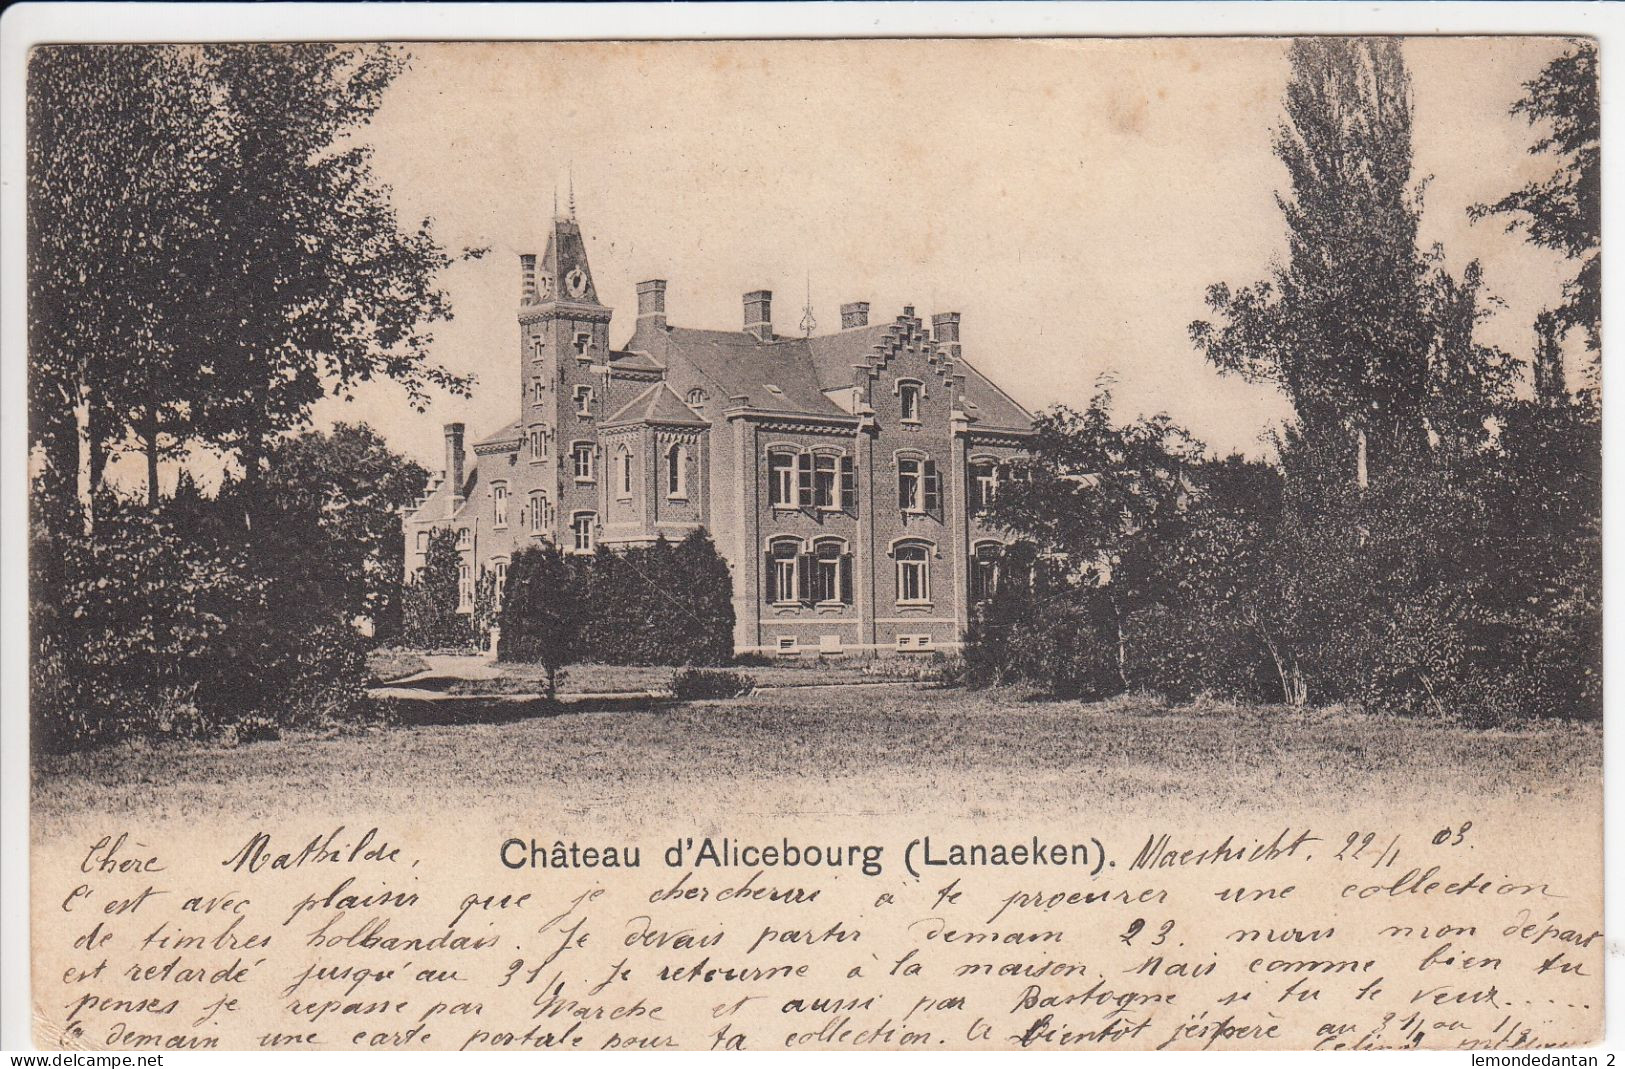 Chère Mathilde, Château d'Alicebourg (Lanaeken). Maestricht. 22/1 03.
C'est avec plaisir que je chercherai à te procurer une collection
de timbres hollandais. Je devais partir demain 23. mais mon départ
est retardé jusqu'au 31/1 Je retourne à la maison. Mais comme bien tu
penses je repasse par Marche et aussi par Bastogne si tu le veux.....
demain une carte postale pour ta collection. Bientôt j'éspère au 31/1 ou 1/2
lemondedantan 2
© delcampe.net